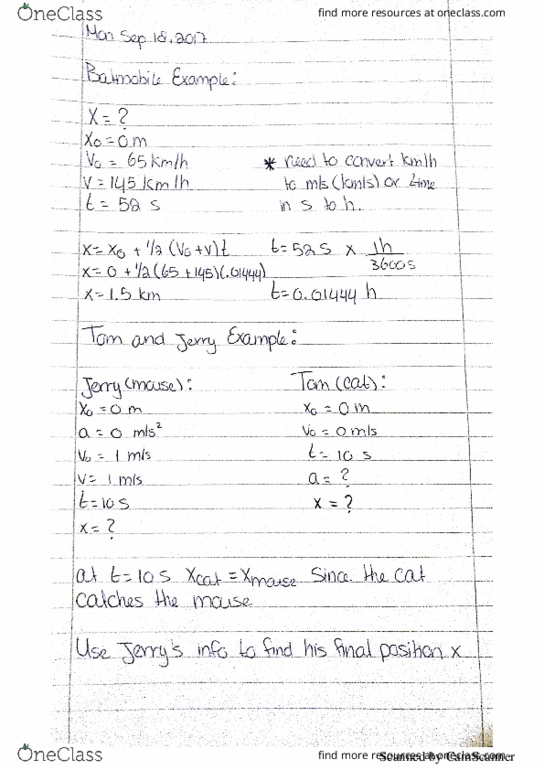 OneClass find more resources at oneclass.com
Mon Sep 18, 2017
Batmobile Example:
x = ?
x₀ = 0 m
V₀ = 65 km/h * need to convert km/h
V = 145 km/h to m/s (km/s) or time
t = 52 s in s to h.
x = x₀ + 1/2 (V₀ + V)t t = 52 s x 1h/3600s
x = 0 + 1/2 (65 + 145)(.01444)
x = 1.5 km t = 0.01444 h
Tom and Jerry Example:
Jerry (mouse): Tom (cat):
x₀ = 0 m x₀ = 0 m
a = 0 m/s² V₀ = 0 m/s
V₀ = 1 m/s t = 10 s
V = 1 m/s a = ?
t = 10 s x = ?
x = ?
at t = 10 s Xcat = Xmouse since the cat
catches the mouse.
Use Jerry's info to find his final position x
OneClass find more resources at oneclass.com
Scanned by CamScanner